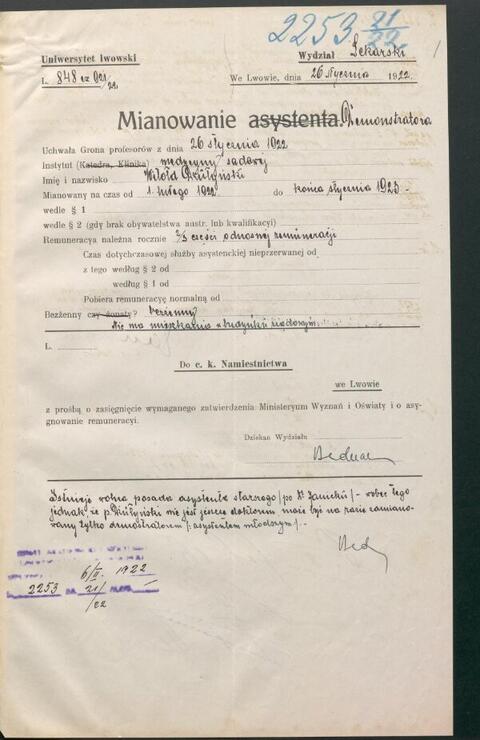 2253 21/22
Uniwersytet lwowski
Wydział Lekarski
L. 848 ex 921/22
We Lwowie, dnia 26 stycznia 1922.
Mianowanie asystenta. Demonstratora
Uchwała Grona profesorów z dnia 26 stycznia 1922
Instytut (Katedra, Klinika) medycyny sądowej
Imię i nazwisko Witold
Mianowany na czas od 1. lutego 1922 do końca stycznia 1923.
wedle § 1
wedle § 2 (gdy brak obywatelstwa austr. lub kwalifikacyi)
Remuneracya należna rocznie 2/3 części odnośnej remuneracji
Czas dotychczasowej służby asystenckiej nieprzerwanej od
z tego według § 2 od
według § 1 od
Pobiera remuneracyę normalną od
Bezżenny czy żonaty? bezżenny
Nie ma mieszkania w budynku rządowym.
L.
Do c. k. Namiestnictwa
we Lwowie
z prośbą o zasięgnięcie wymaganego zatwierdzenia Ministeryum Wyznań i Oświaty i o asygnowanie remuneracyi.
Dziekan Wydziału
Istnieje wolna posada asystenta starszego /po Dr. / - wobec tego
jednak, że p. nie jest jeszcze doktorem może być na razie zamiano-
wany tylko demonstratorem /: asystentem młodszym/-
6/II. 1922
2253 21/22